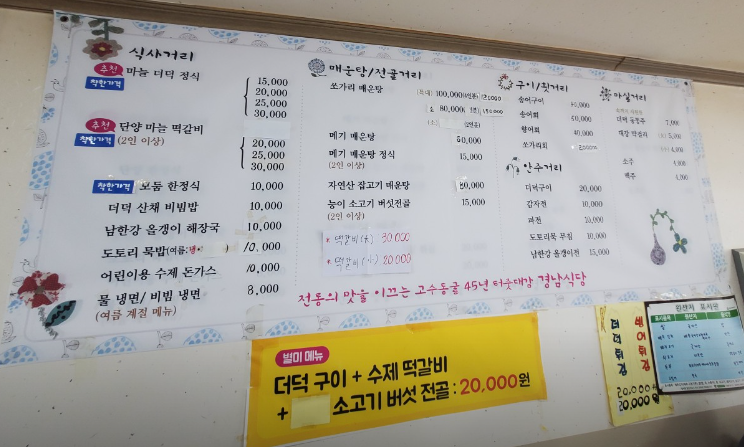 식사거리
추천 마늘 더덕 정식
착한가격
15,000
20,000
25,000
30,000
추천 단양 마늘 떡갈비
착한가격 (2인 이상)
20,000
25,000
30,000
착한가격 모듬 한정식 10,000
더덕 산채 비빔밥 10,000
남한강 올갱이 해장국 10,000
도토리 묵밥(여름: 냉) 10,000
어린이용 수제 돈가스 10,000
물 냉면/ 비빔 냉면 8,000
(여름 계절 메뉴)
매운탕/전골거리
쏘가리 매운탕 100,000
소 80,000
메기 매운탕 60,000
메기 매운탕 정식 15,000
(2인 이상)
자연산 잡고기 매운탕 80,000
능이 소고기 버섯전골 15,000
(2인 이상)
* 떡갈비 (大) 30,000
* 떡갈비 (小) 20,000
구이/횟거리
송어구이
송어회
향어회
쏘가리회
안주거리
더덕구이 20,000
감자전 10,000
파전
도토리묵 무침 10,000
남한강 올갱이전 15,000
마실거리
더덕 동동주 7,000
대강 막걸리
소주 4,000
맥주 4,000
전통의 맛을 이끄는 고수동굴 45년 터줏대감 경남식당
별미 메뉴
더덕 구이 + 수제 떡갈비
+ 소고기 버섯 전골 : 20,000원
더덕튀김
20,000
20,000원
원산지 표시판